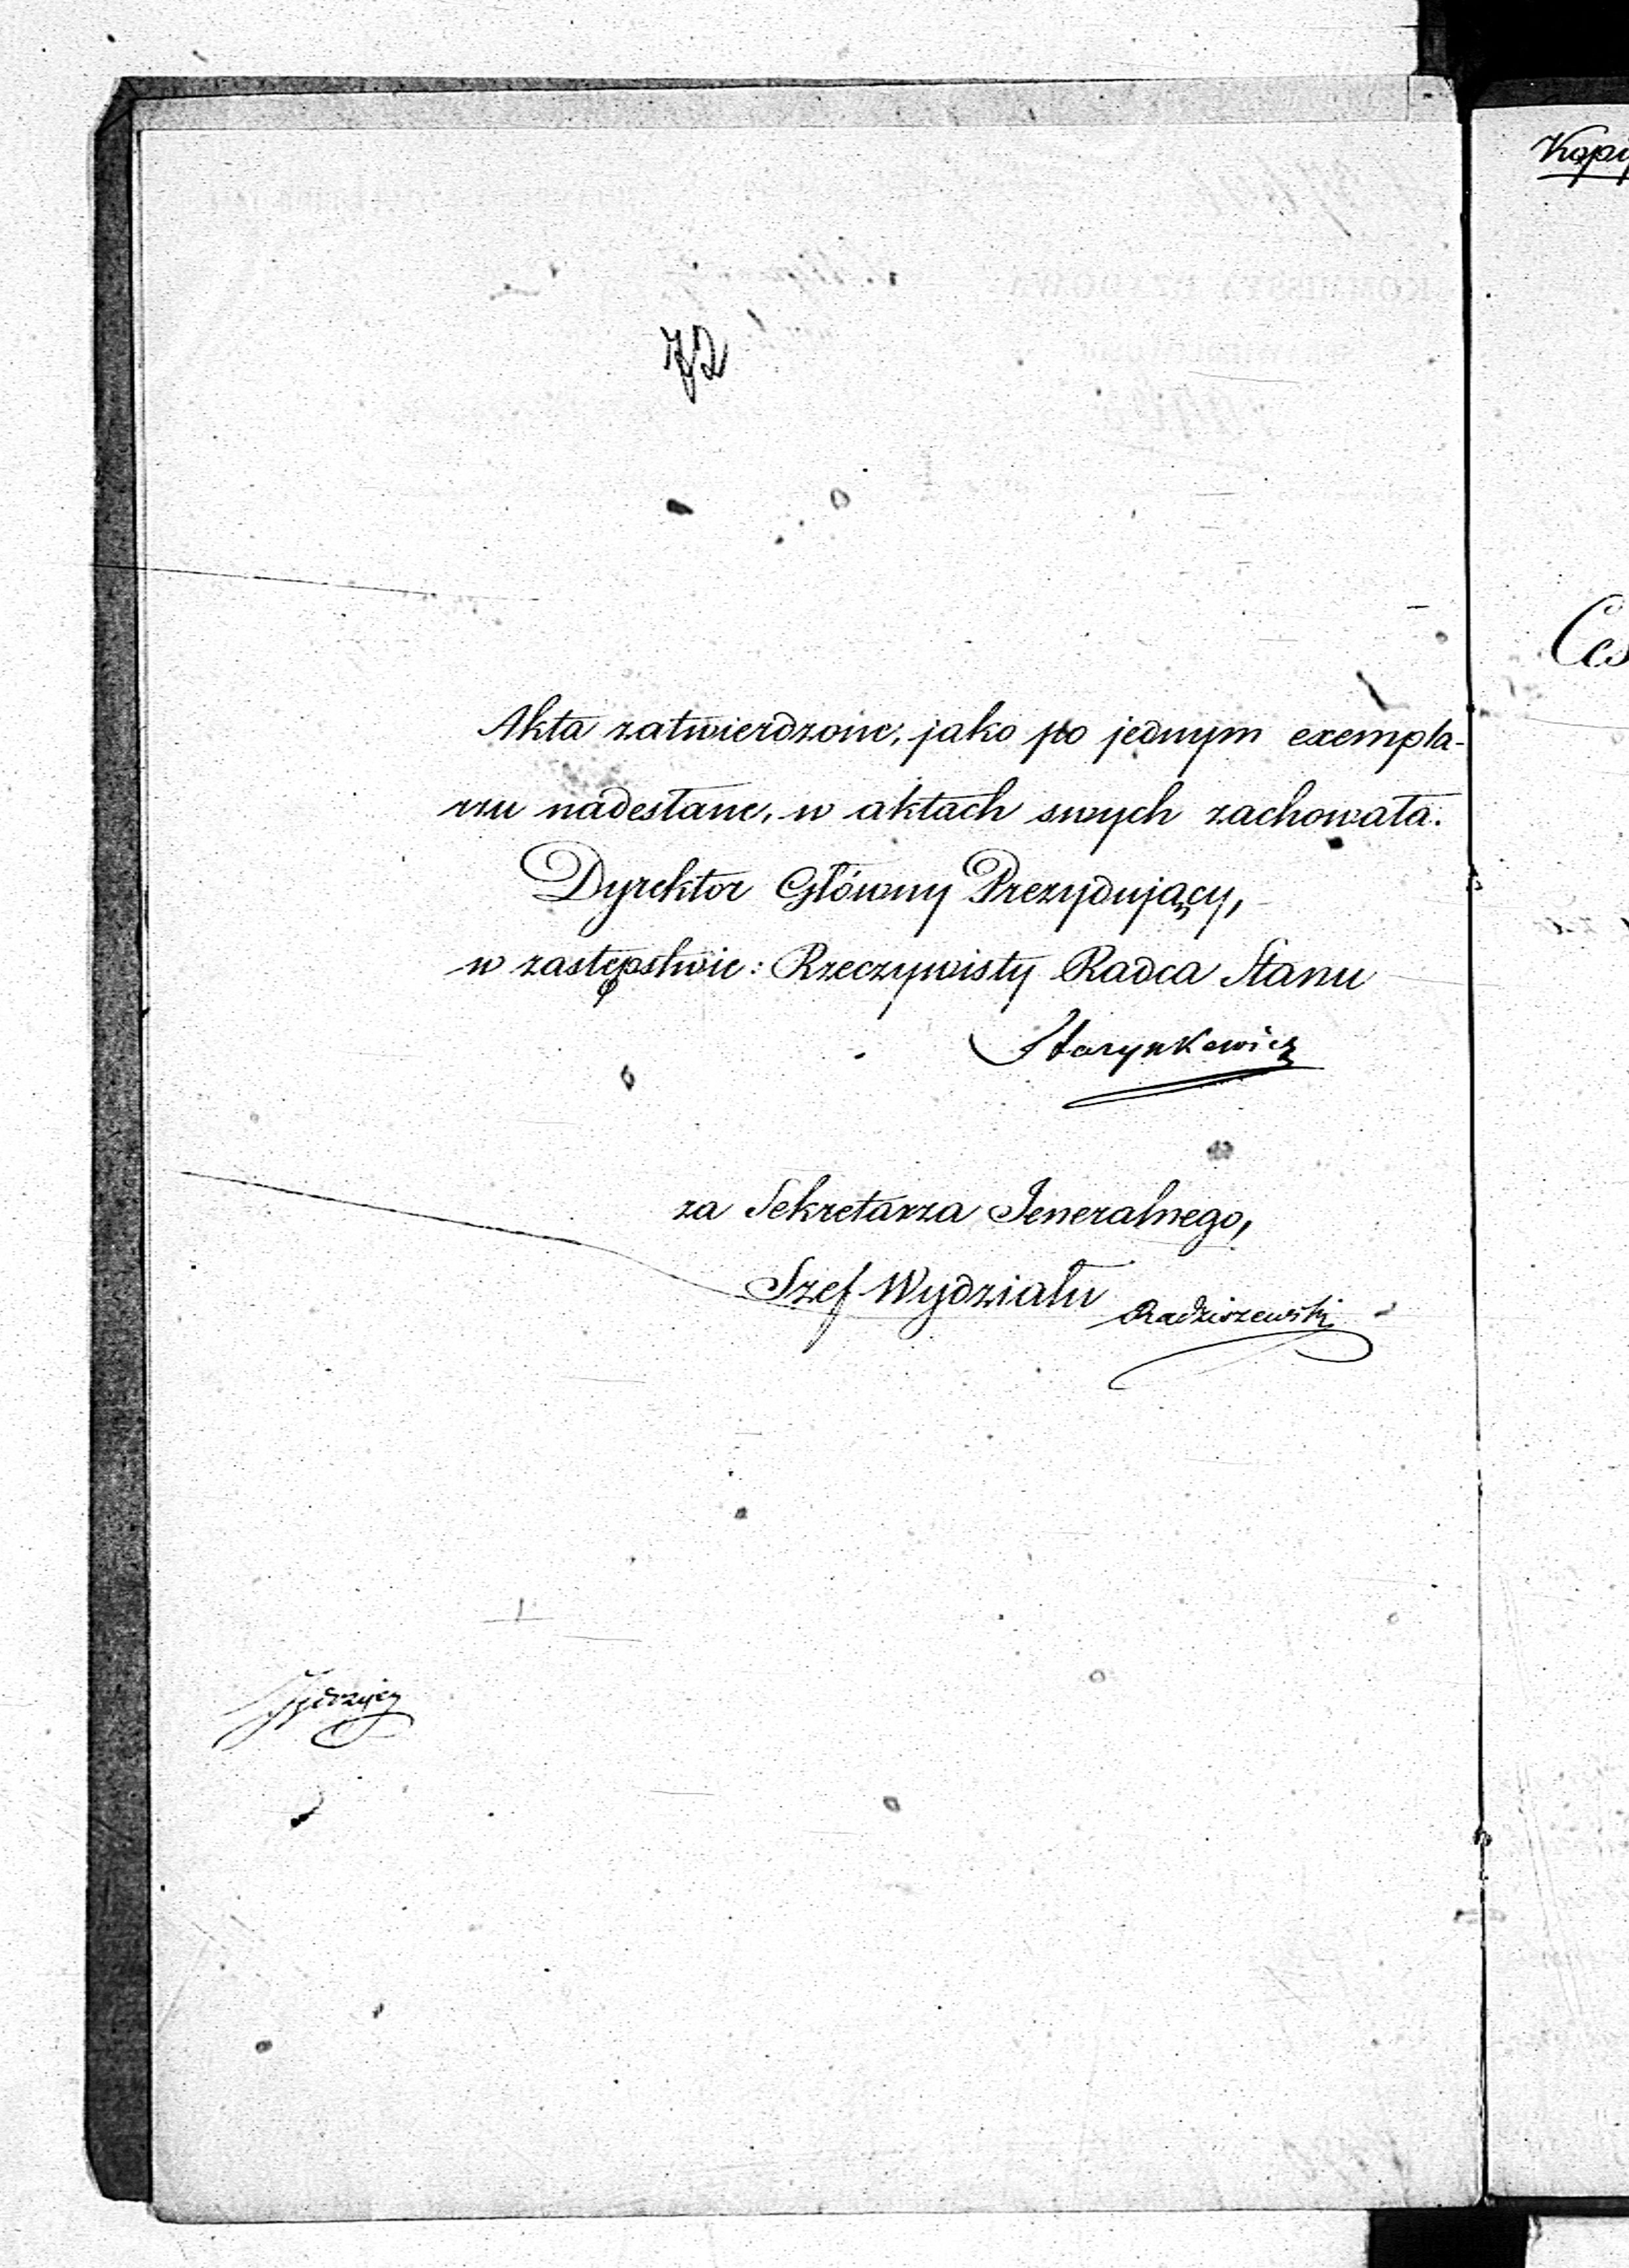 72
Akta zatwierdzone, jako po jednym exempla-
rzu nadesłane, w aktach swych zachowała.
Dyrektor Główny Prezydujący,
w zastępstwie: Rzeczywisty Radca Stanu
Starynkewicz
za Sekretarza Jeneralnego,
Szef Wydziału Radziszewski